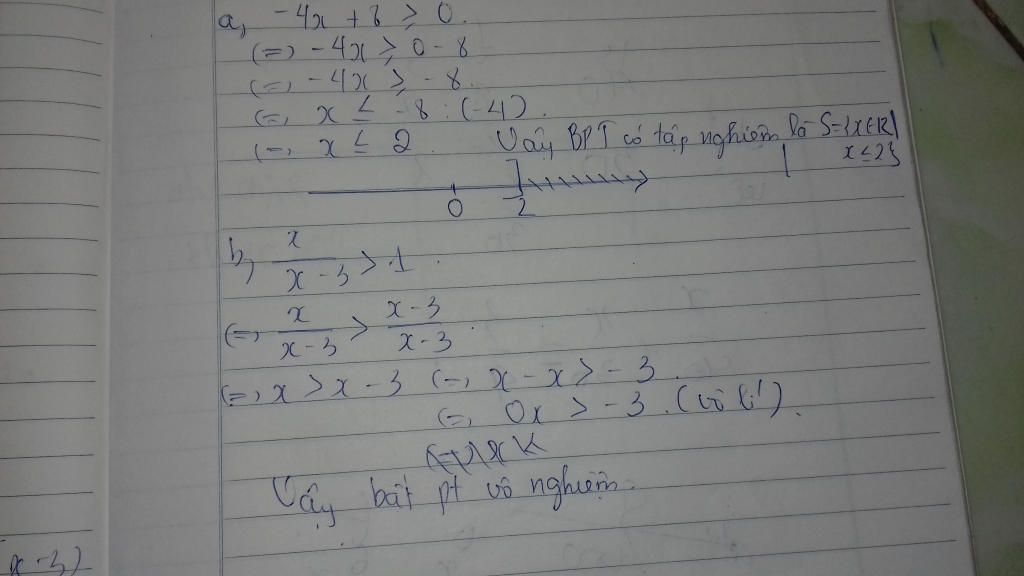 a, -4x + 8 ≥ 0.
(=) -4x ≥ 0 - 8
(=) -4x ≥ -8.
(=, x ≤ -8 : (-4).
(=, x ≤ 2. Vậy BPT có tập nghiệm là S={x∈R|
x≤2}
0 2
b, x/(x-3) > 1.
(=, x/(x-3) > (x-3)/(x-3).
(=, x > x - 3 (=, x - x > -3.
(=, 0x > -3. (vô lí).
Vậy bất pt vô nghiệm.
x-3)